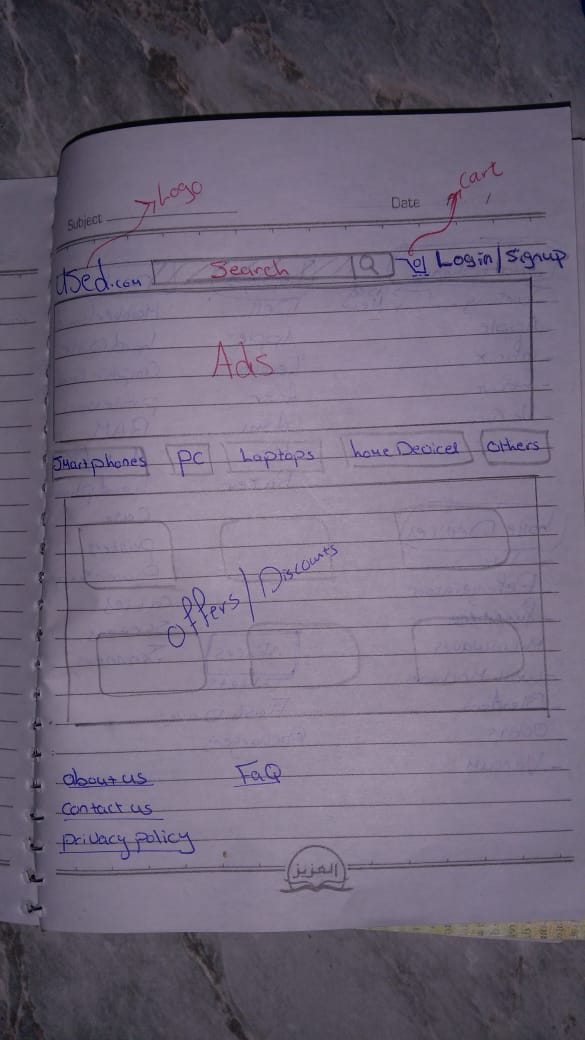 Logo
Cart
Subject
Date
Used.com
Search
Login/Signup
Ads
Smartphones
PC
Laptops
home Devices
Others
Offers/Discounts
about us
FaQ
Contact us
privacy policy
العزيز